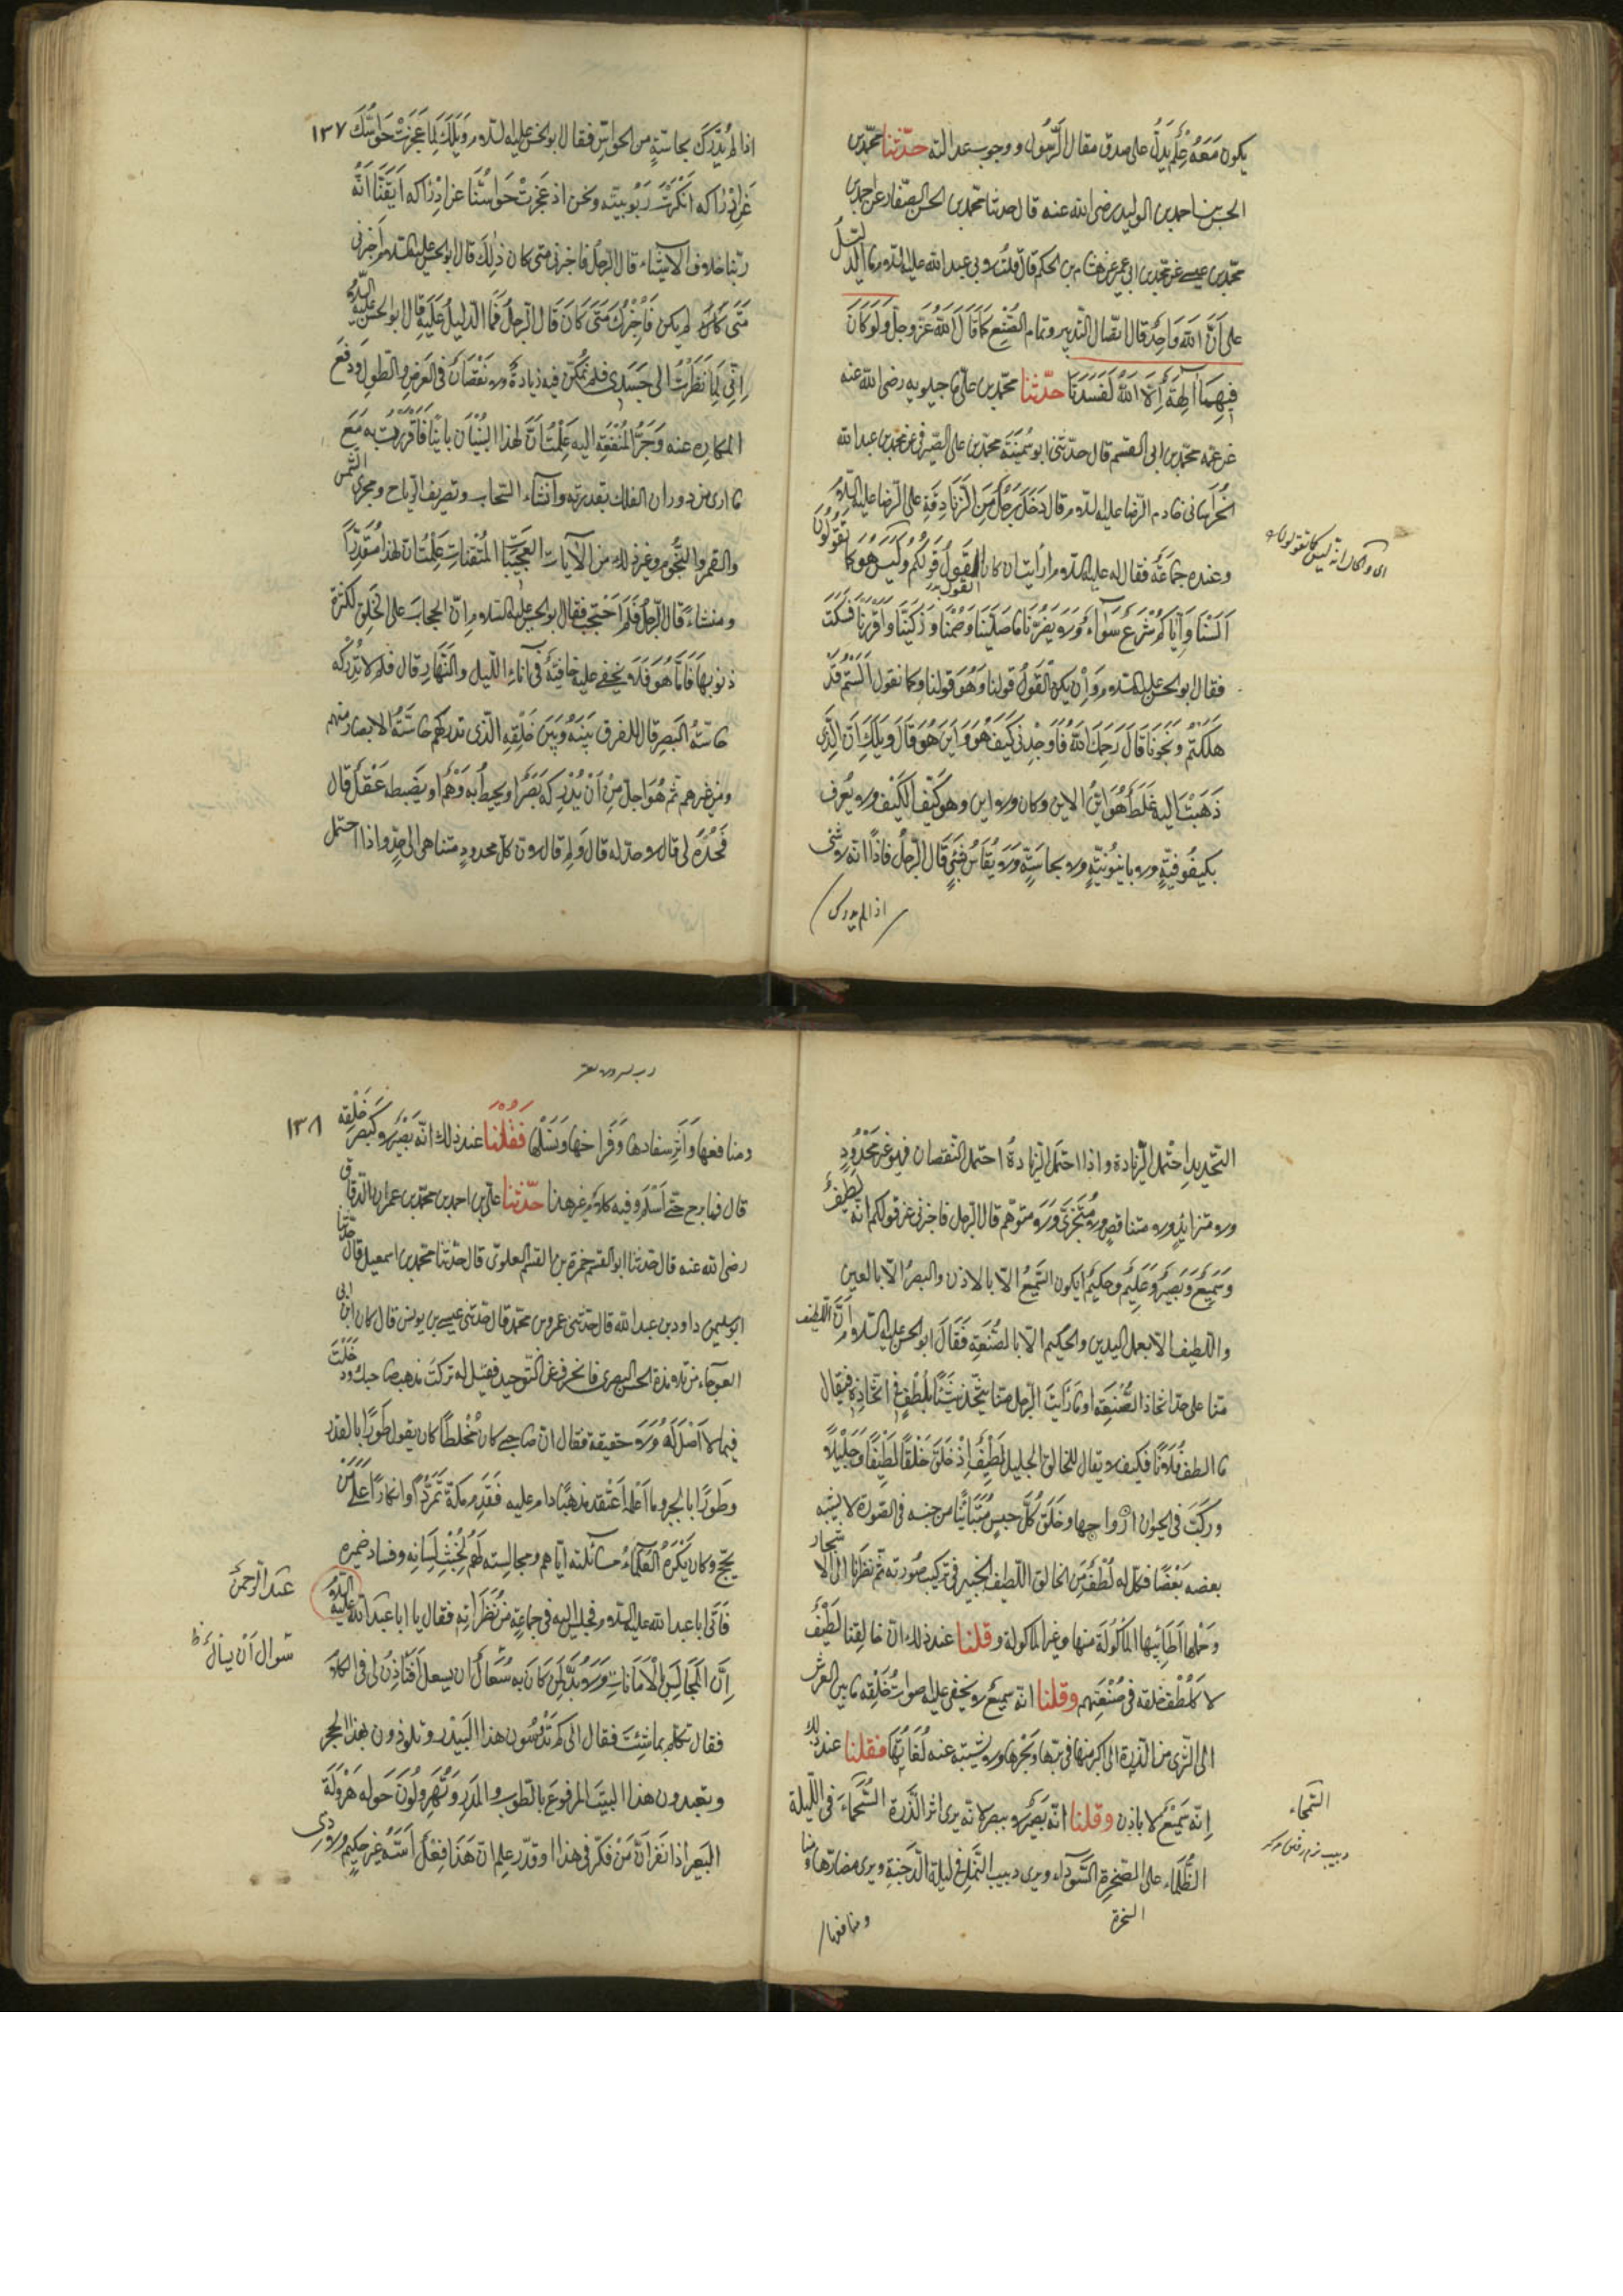 يكون مَعَهُ عِلم يدلّ على صدق مقال الرّسُول ووجوب عدالته حدّثنا محمّد بن
الحسن بن احمد بن الوليد رضى الله عنه قال حدثنا محمّد بن الحسن الصّفار عن احمد بن
محمّد بن عيسى عن محمّد بن ابى عمير عن هشام بن الحكم قال قلت لابى عبد الله عليه السلام ما الدّليلُ
على اَنَّ الله وَاحِدٌ قال اتّصال التّدبير وتمام الصُّنْعِ كَمَا قَالَ اَللهُ عَزّ وجلّ وَلَوْ كَانَ
فِيهِمَا الِهَةٌ اِلّا اللهُ لَفَسَدَتَا حدّثنا محمّد بن علىّ ماجيلويه رضى الله عنه
عن عمّه محمّد بن ابى القسم قال حدّثنى ابو سُمَيْنَة محمّد بن على الصّيرفى عن محمّد بن عبد الله
الخُرَاسانى خادم الرّضا عليه السلام قال دَخَلَ رَجُلٌ مِنَ الزَّنَادِقَةِ على الرّضا عليه السلام
وعنده جماعَةٌ فقال له عليه السلام أرأيت ان كان القَولُ قَوْلُكُمْ وَلَيْسَ هُوَ كما تَقُولُونَ
القول
اَلَسْنَا وَاِيّاكُمْ شَرْعٌ سَوَآءٌ وَلا يَضُرّنَا مَا صَلَّيْنَا وَصُمْنَا وَزَكَّيْنَا وَاَقْرَرْنَا فَسَكَتَ
فقال ابو الحسن عليه السلام وَاِنْ يكن الْقَوْلُ قولنا وَهُوَ قولنا وكما نقول اَلَسْتُمْ قَدْ
هَلَكْتُمْ ونَجَوْنَا قَالَ رَحِمَكَ اللهُ فَاَوْجِدْنِى كَيْفَ هُوَ وَاَيْنَ هُوَ قَالَ وَيْلَكَ اِنَّ الَّذِى
ذَهَبْتَ اليه غَلَطٌ هُوَ اَيَّنَ الاين وكان ولا اين وهو كَيَّفَ الكَيْفَ ولا يُعرف
بكيفُوفيّةٍ ولا باينُونِيّةٍ ولا بحاسّةٍ وَلا يُقَاسُ بشئٍ قال الرّجلُ فاذًا انه لا شئ
اذا لم يدرك
اى والحال انه ليس كما تقولون
١٣٧
اذا لم يُدْرَكَ بحاسّةٍ من الحواسّ فقال ابو الحسن عليه السلام وَيْلَكَ لمّا عَجَزَتْ حَوَاسُّكَ
عَن اِدْرَاكه اَنْكَرْتَ رَبُوبيّته ونحن اذ عَجَزتْ حَوَاسُّنَا عن اِدْرَاكه اَيْقَنَّا اَنَّهُ
ربّنا خلاف الاشياء قال الرّجلُ فاخبرنى متى كان ذٰلِكَ قال ابو الحسن عليه السلام اخبرنى
مَتَى لم يكن فَاُخْبِرُكَ مَتَى كَانَ قَالَ الرّجلُ فَمَا الدّليلُ عَلَيْهِ قال ابو الحسن عليه السلام
اِنِّى لمّا نَظَرْتُ الى جَسَدِى فلم يُمْكِنّى فيه زيادةٌ ولا نُقْصَانٌ فى العَرْضِ والطولِ وَدَفعَ
المكاره عنه وَجَرّ المنْفَعَةِ اليه عَلِمْتُ اَنَّ لهذا البُنْيَان بانِيًا فَاَقْرَرْتُ به مَعَ
ما ارى من دوران الفلك بقدرته وانشاء السّحاب وتصريف الرّياح ومجرى الشّمس
والقمر والنّجوم وغير ذلك من الآيات العجيبات المُتْقنَاتِ عَلِمْتُ ان لهذا مُقَدِّرًا
ومنشئًا قال الرّجلُ فَلِمَ احْتَجَبَ فقال ابو الحسن عليه السلام انّ الحجابَ على الخَلق لكثرة
ذنوبها فَاَمّا هُوَ فَلا يخفى عليه خافِيَةٌ فى آناءِ اللّيل والنَّهَارِ قال فلم لا تُدركه
حاسّةُ البَصرِ قال للفرق بَيْنَهُ وَبَيْنَ خَلْقِهِ الّذى تدركهم حَاسّةُ الابصار منهم
ومن غيرهم ثم هُوَ اجلّ مِنْ اَنْ يُدْرِكَهُ بَصَرٌ اَو يحيطُ به وَهْمٌ او يَضبطه عَقْلٌ قال
فَحُدَّهُ لى قال لا حدّ له قال وَلِمَ قال لانّ كلّ محدودٍ متناهٍ الى حدٍّ واذا احتمل
التحديدَ احْتَمل الزّيادة واذا احتَمَل الزّيادةُ احتمل النّقصان فهو غير مَحْدُودٍ
ولا متزايدٍ ولا متناقصٍ ولا مُتَجزّى وَلا متوهّم قال الرّجل فاخبرنى عن قولكم انه لَطِيفٌ
وَسَمِيعٌ وَبَصِيرٌ وَعَلِيمٌ وحكيم أيكون السّميعُ الّا بالاذن والبصيرُ الّا بالعين
واللّطيف الّا بعمل اليدين والحكيم الّا بالصّنعةِ فَقَالَ ابو الحسن عليه السلام انَّ اللّطيف
منّا على حدّ اتخاذ الصّنعة او ما رَاَيْتَ الرّجل منّا يتّخذ شَيْئًا يَلْطُفُ فى اتخاذِه فيقال
ما الطف فُلانًا فكيف لا يقال للخالق الجليل لَطِيفٌ اِذْ خَلَقَ خَلْقًا لَطِيفًا وَجَليْلاً
وركّبَ فى الحيوان ارْواحها وخَلَقَ كُلّ جنسٍ مُتَبايِنًا من جنسه فى الصّورة لا يشبه
بعضه بَعْضًا فكل له لُطْفٌ من الخالق اللّطيف الخبير فى تركيب صُورته ثم نظرنا الى الاشجار
وَحَمْلها اَطَائِبَهَا المَاكُولَةَ منها وغير المأكولة وقلنا عند ذلك انّ خالقنا لَطِيفٌ
لا كَلُطْفِ خلقه فى صُنْعَتِهم وقلنا انه سميعٌ لا يخفى عليه اصواتُ خَلْقِه ما بين العرش
الى الثّرى من الذّرة الى اكبر منها فى بَرّها وبَحْرِهَا ولا يشتبه عنه لُغَاتُهَا فقلنا عند ذلك
اِنّه سَمِيْعٌ لا باذن وقلنا انّه بَصِيرٌ لا ببصر لانه يرى اثر الذّرة السُّحْمَاءَ فى اللّيلة
الظّلماء على الصّخرة السّوداء ويرى دبيب النّمل فى ليلة الدّجنة ويرى مضارّها
ومنافعها
الصخرة
السّحماء
ومنافعها وَاَثَر سفادها وَفَراخها وَنَسْلها فَقُلْنَا عند ذلك انّه بَصِيرٌ لا كَبَصرِ خَلْقِه
١٣٨
قال فما برح حتّى اَسْلَمَ وفيه كلام غير هذا حدّثنا علىّ بن احمد بن محمّد بن عمران الدّقاق
رضى الله عنه قال حدّثنا ابو القسم حمزة بن القسم العلوىّ قال حدّثنا محمّد بن اسمعيل قال حدّثنا
ابو سليمن داود بن عبد الله قال حدّثنى عمرو بن محمّد قال حدّثنى عيسى بن يونس قال كان ابن ابى
العوجاء من تلامذة الحسن البصرى فانحرف عن التّوحيد فقيل له تركتَ مذهب صاحبك ودَخَلْتَ
فيما لا اَصْلَ لَهُ وَلا حقيقة فقال انّ صاحبى كان مُخْلِطًا كان يقول طَورًا بالقدر
وطَورًا بالجبر وما اَعْلمه اعْتَقَد مذهبًا دام عليه فقَدِمَ مكّة تَمَرُّدًا وانكارًا على مَنْ
يحجّ وكان يَكْرَهُ العُلَمَاءُ مسائلته ايّاهم ومجالسته لَهُمْ لِخُبْثِ لِسَانِه وفساد ضميره
فَأتى ابا عبد الله عليه السلام فجلس اليه فى جماعةٍ من نُظَرَائِه فقال يا ابا عبد الله
عليه السلام
عبد الرّحمن
اِنَّ المَجَالِسَ بالْاَمَانَاتِ وَلا بُدَّ لِمَن كَانَ به سُعَالٌ ان يسعل اَفَتأذَنُ لى فى الكلام
فقال تكلّم بما شِئتَ فقال الى كم تَدُوسُون هذا البَيْدَر وتلوذون بهذا الحجر
وتعبدون هذا البيتَ المرفوعَ بالطّوب والمدَر وَتُهَرْوِلُونَ حَوله هَرْوَلَة
البَعير اذا نفرَ اَنّ مَنْ فكّر فى هذا او قدّر علم ان هَذَا فِعْلٌ اَسّسَهُ غير حكيم ولا ذى